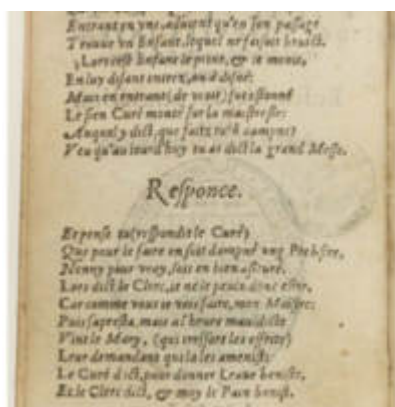 Entrant en une, advient qu'en son passage
Trouve un Enfant, lequel ne faisoit bruict.
Lors cest Enfant le print, & le
En luy disant
Mais en entrant (de veoir) fut estonné
Le sien Curé monté sur la maistresse:
Auquel y dict, que faictz
Veu qu'au jourd'huy tu as dict la grand Messe.
Responce.
Et pense tu (respondit le Curé)
Que pour le faire en soit dampné ung Prebstre,
Nenny pour vray, sois en bien asseuré.
Lors dict le Clerc, je ne le peulx donc estre,
Car comme vous le vois faire, mon Maistre:
Puis s'apresta, mais a l'heure mauldicte
Vint le Mary, (qui
Leur demandant qui la les
Le Curé dict, pour donner l'eaue beniste,
Et le Clerc dict, & moy le Pain benist.